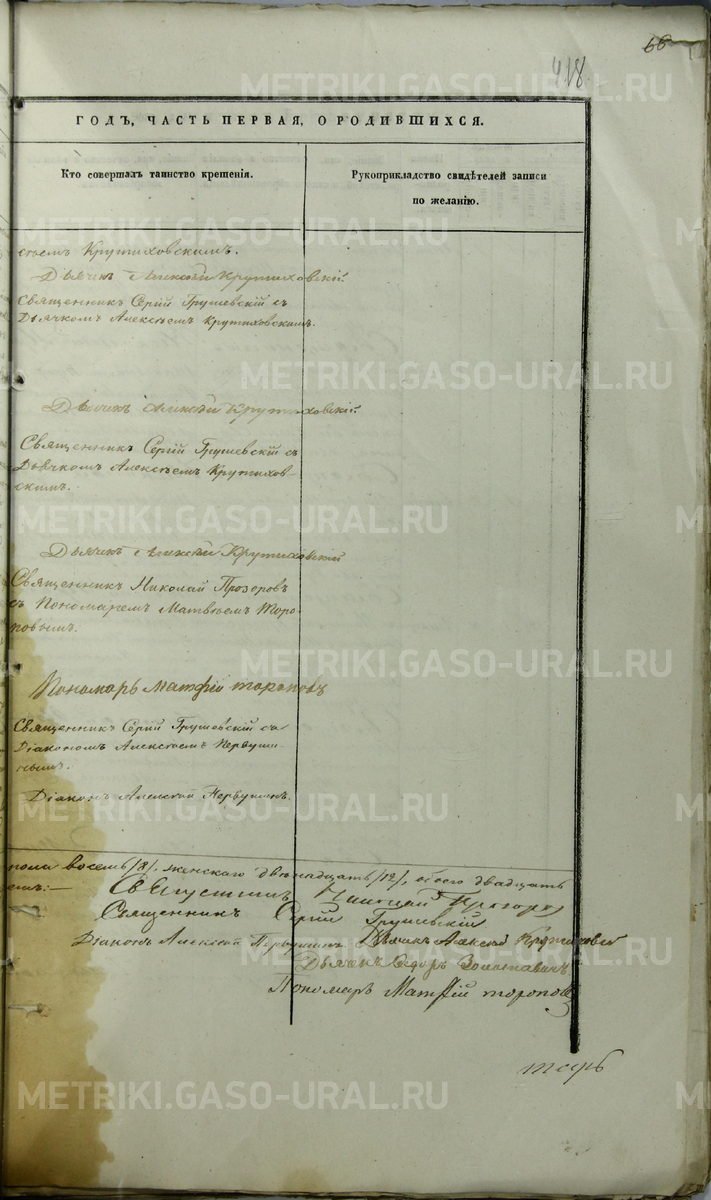 66
418
ГОДЪ, ЧАСТЬ ПЕРВАЯ, О РОДИВШИХСЯ.
Кто совершалъ таинство крещенія.
Рукоприкладство свидѣтелей записи
по желанію.
Крутиховскимъ.
Дьячик Алексѣй Крутиховскій.
Священникъ Сергій Грушевскій съ
Дьячкомъ Алексѣемъ Крутиховскимъ.
Дьячикъ Алексѣй Крутиховскій.
Священникъ Сергій Грушевскій съ
Дьячкомъ Алексѣемъ Крутихов-
скимъ.
Дьячикъ Алексѣй Крутиховскій
Священникъ Николай Прозоровъ
съ Пономаремъ Матвѣемъ Торо-
повымъ.
Пономарь Матфій Тороповъ
Священникъ Сергій Грушевскій съ
Діакономъ Алексѣемъ Первуши-
нымъ.
Діаконъ Алексѣй Первушинъ.
пола восемь /8/, женскаго двѣнадцать /12/, обоего двадцать
Николай Прозоровъ
Священникъ Сергій Грушевскій
Діаконъ Алексѣй Первушинъ Дьячикъ Алексѣй Крутиховскій
Дьячокъ Ѳедоръ
Пономарь Матфій Тороповъ
METRIKI.GASO-URAL.RU